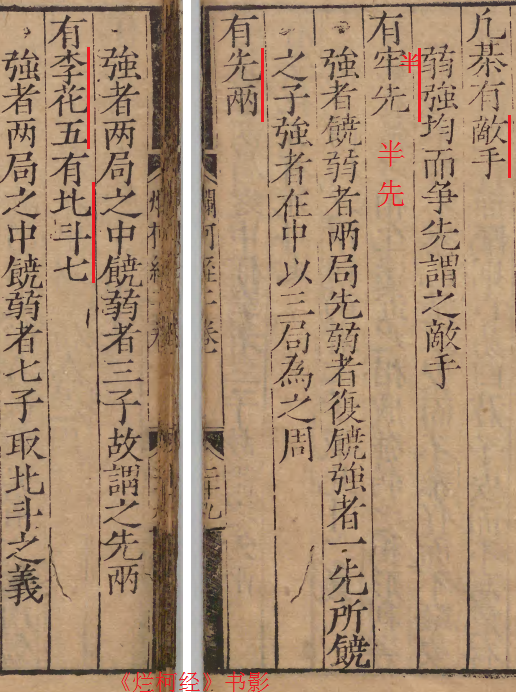 凢棊有敵手
弱強均而争先謂之敵手
有牢先
半
半先
強者饒弱者兩局先弱者復饒強者一先所饒
之子強者在中以三局為之周
有先兩
二十九
強者两局之中饒弱者三子故謂之先兩
有李花五有北斗七
強者两局之中饒弱者七子取北斗之義
《烂柯经》书影